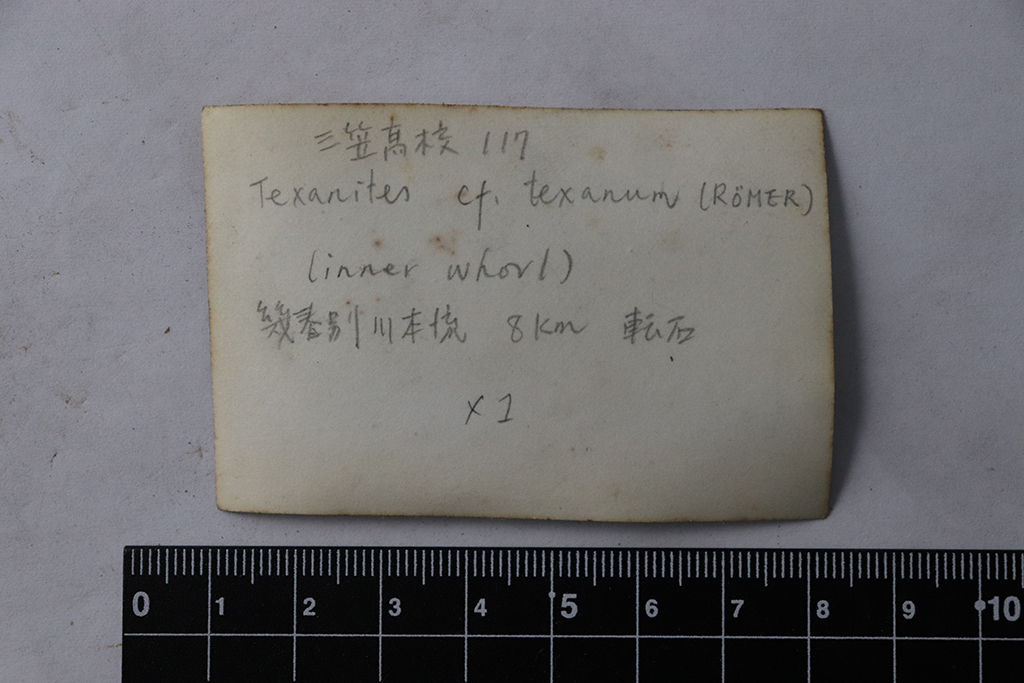 三笠高校 117
Texanites cf. texanum (RÖMER)
(inner whorl)
幾春別川本流 8km 転石
×1
0 1 2 3 4 5 6 7 8 9 10